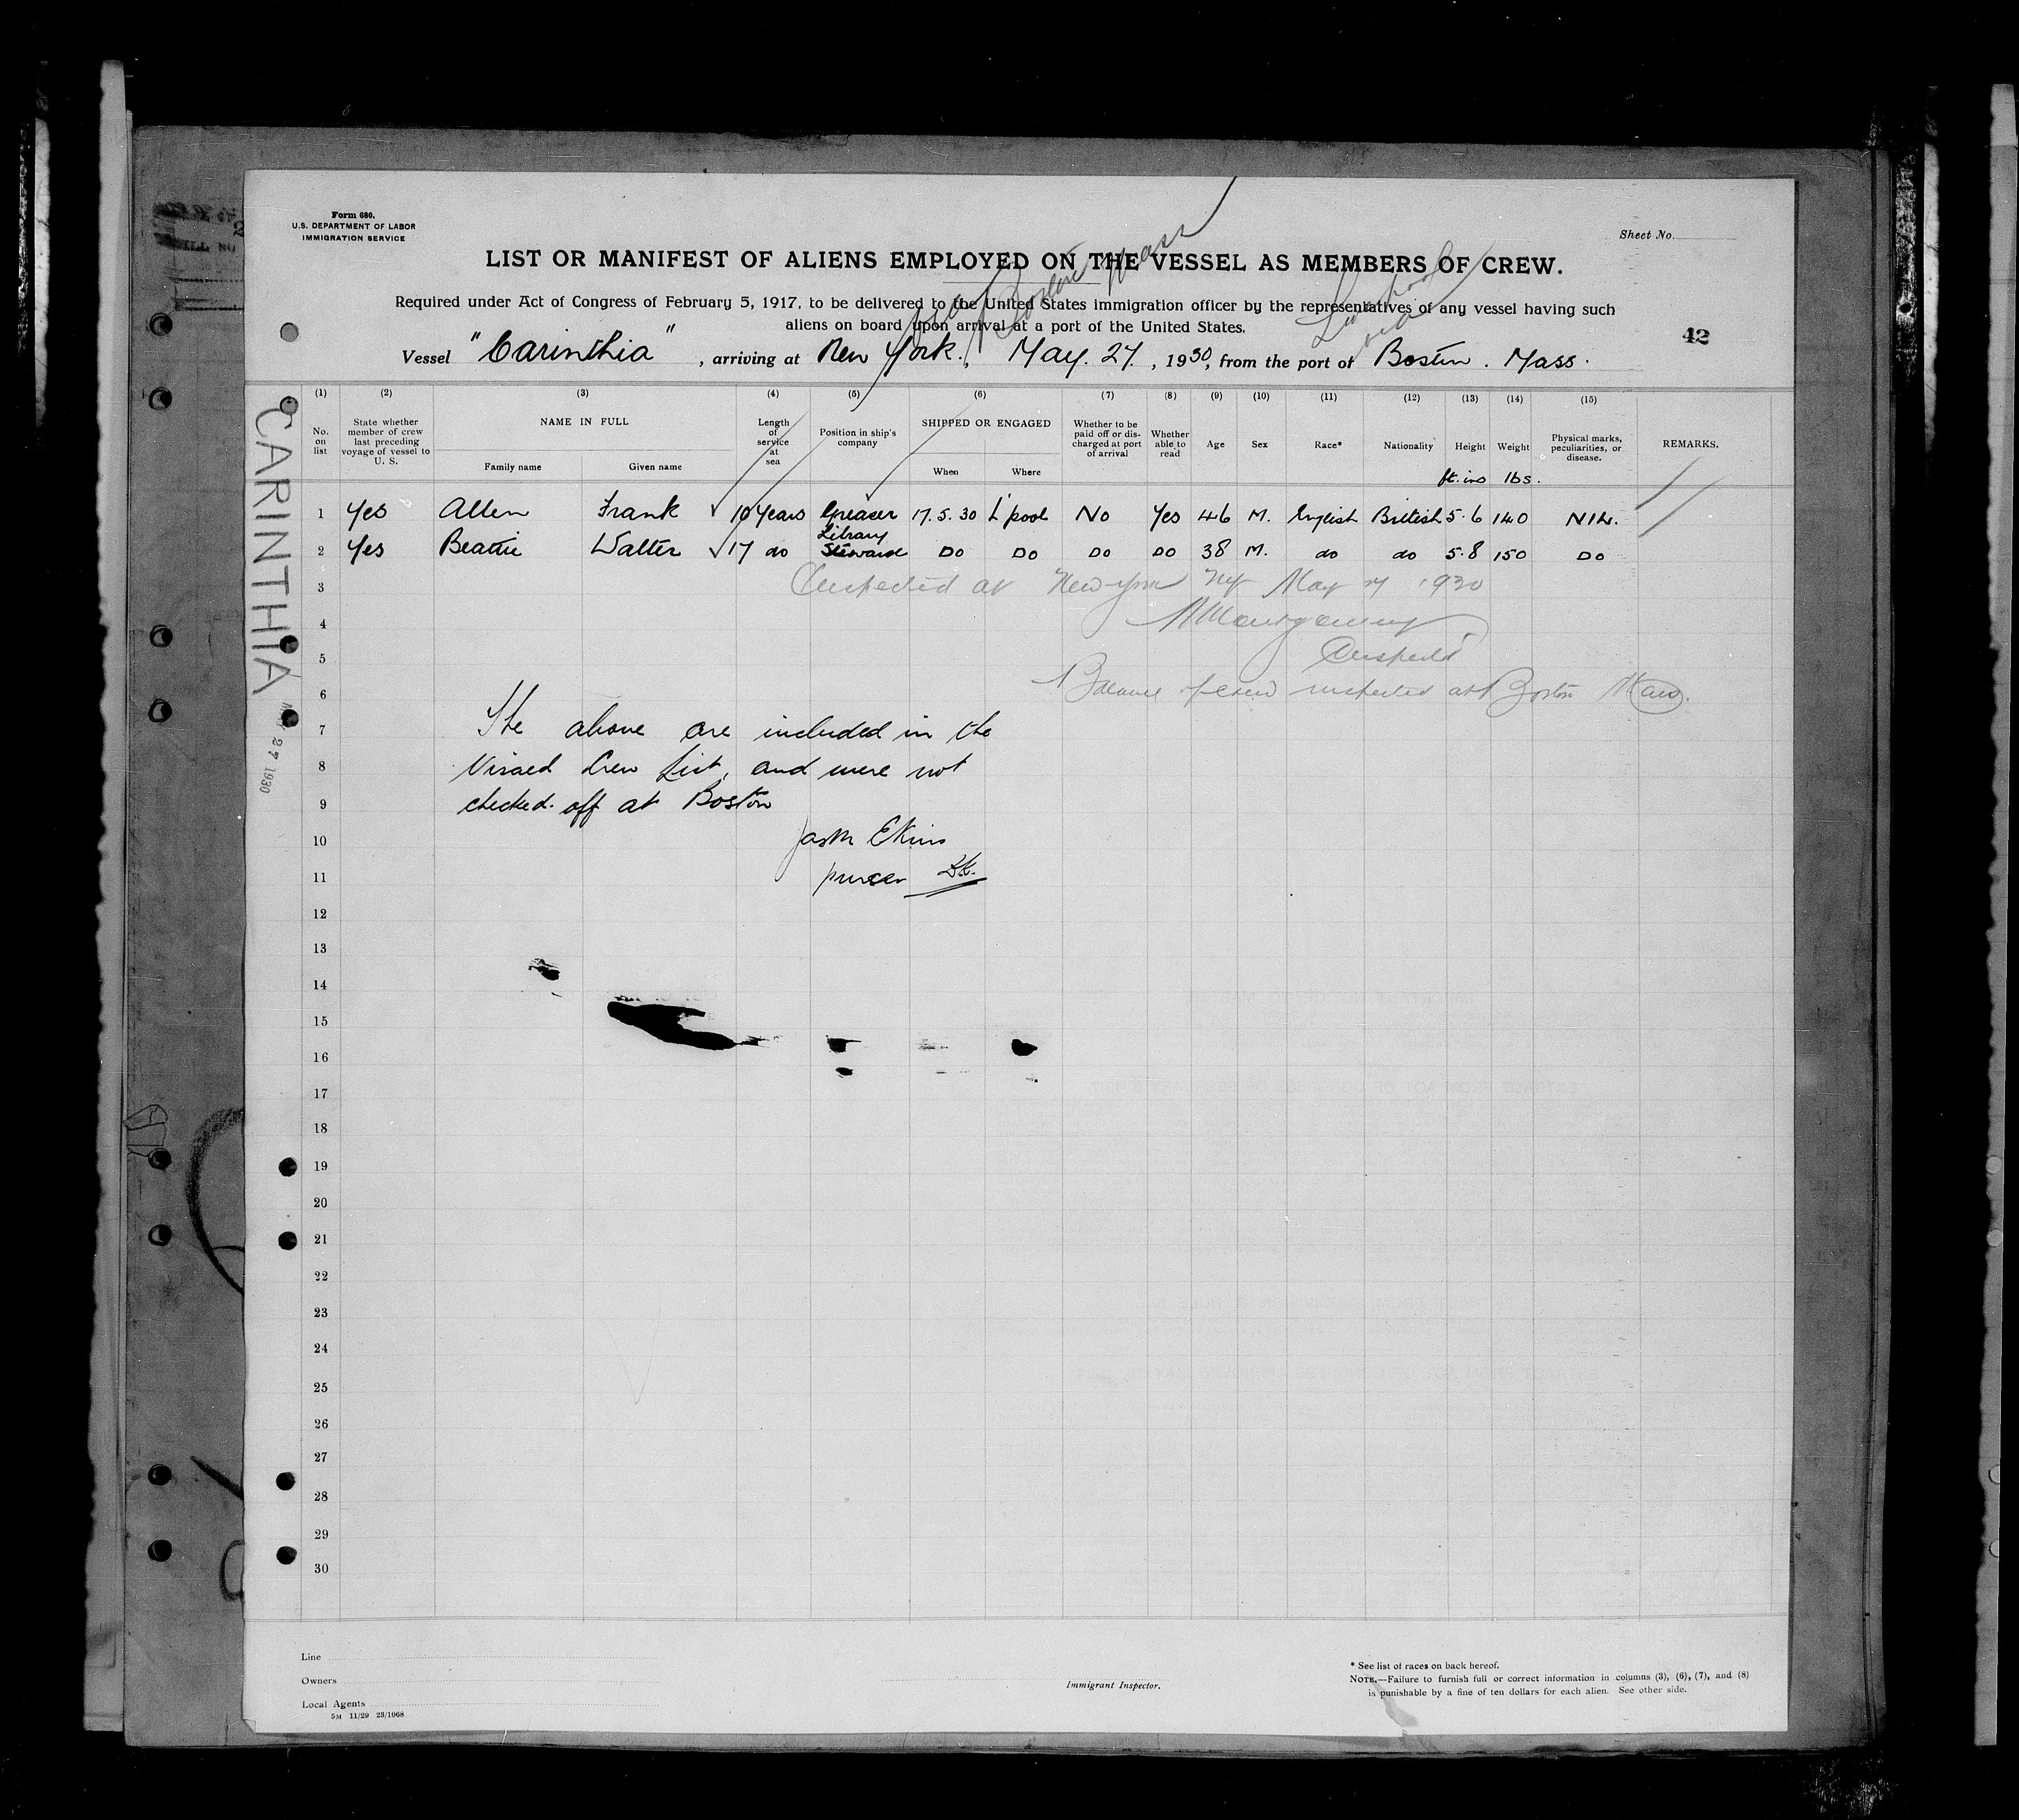 Form 680.
U.S. DEPARTMENT OF LABOR
IMMIGRATION SERVICE
Sheet No.
LIST OR MANIFEST OF ALIENS EMPLOYED ON THE VESSEL AS MEMBERS OF CREW.
Boston Mass
Required under Act of Congress of February 5, 1917, to be delivered to the United States immigration officer by the representatives of any vessel having such
aliens on board upon arrival at a port of the United States.
Liverpool
via
42
Vessel "Carinthia", arriving at New York., May. 27., 1930, from the port of Boston. Mass.
CARINTHIA
MAY 27 1930
(1) (2) (3) (4) (5) (6) (7) (8) (9) (10) (11) (12) (13) (14) (15)
No. on list
State whether member of crew last preceding voyage of vessel to U. S.
NAME IN FULL
Family name Given name
Length of service at sea
Position in ship's company
SHIPPED OR ENGAGED
When Where
Whether to be paid off or discharged at port of arrival
Whether able to read
Age
Sex
Race*
Nationality
Height
Weight
Physical marks, peculiarities, or disease.
REMARKS.
ft. ins lbs.
1 Yes Allen Frank 10 Years Greaser 17.5.30 L'pool No Yes 46 M. English British 5.6 140 NIL.
2 Yes Beattie Walter 17 do Library Steward DO DO DO DO 38 M. do do 5.8 150 DO
3 Inspected at New York NY May 27 1930
4 Montgomery
5 Inspector
6 Balance of crew inspected at Boston Mass.
7 The above are included in the
8 Visaed Crew List, and were not
9 checked off at Boston
10 Jas M Ekins
11 purser
12
13
14
15
16
17
18
19
20
21
22
23
24
25
26
27
28
29
30
Line
Owners
Local Agents
5M 11/29 23/1068
Immigrant Inspector.
* See list of races on back hereof.
NOTE.—Failure to furnish full or correct information in columns (3), (6), (7), and (8)
is punishable by a fine of ten dollars for each alien. See other side.